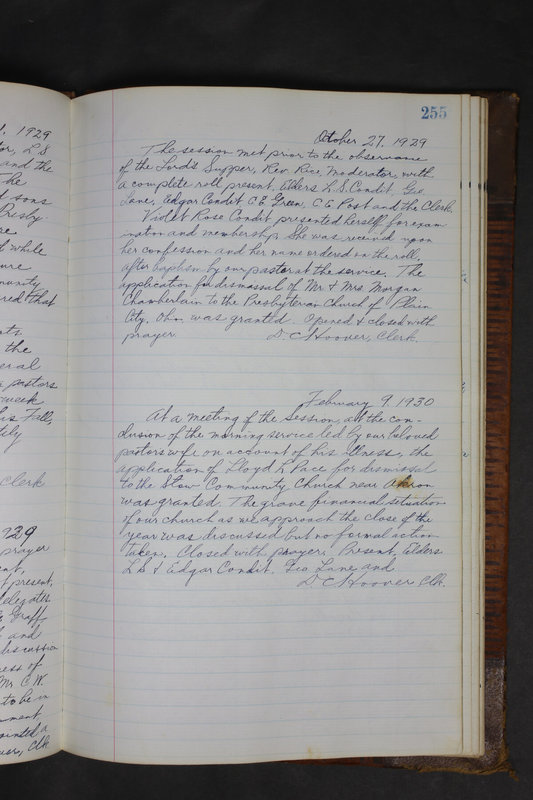 255
October 27, 1929
The session met prior to the observance
of the Lord's Supper, Rev Rice, Moderator, with
a complete roll present, Elders L. S. Condit, Geo.
Lane, Edgar Condit C E Green, C E Post and the Clerk.
Violet Rose Condit presented herself for exam
ination and membership. She was received upon
her confession and her name ordered on the roll,
after baptism by our pastor at the service. The
application for dismissal of Mr. & Mrs. Morgan
Chamberlain to the Presbyterian Church of Plain
City, Ohio. was granted. Opened & closed with
prayer. D. C Hoover, Clerk.
February 9, 1930
At a meeting of the Session, at the con-
clusion of the morning service led by our beloved
pastors wife on account of his illness, the
application of Lloyd K Pace for dismissal
to the Stow Community Church near Akron
was granted. The grave financial situation
of our church as we approach the close of the
year was discussed but no formal action
taken. Closed with prayer. Present, Elders
L S & Edgar Condit. Geo Lane and
D C Hoover Clk.
1929
and the
The
sons
Presby
of while
munity
red that
the
eral
pastors
week
his Fall,
Clerk
929
prayer
present,
delegates
Graff
and
discussion
ess of
Mr. C. W.
to be in
ment
ointed a
Clk